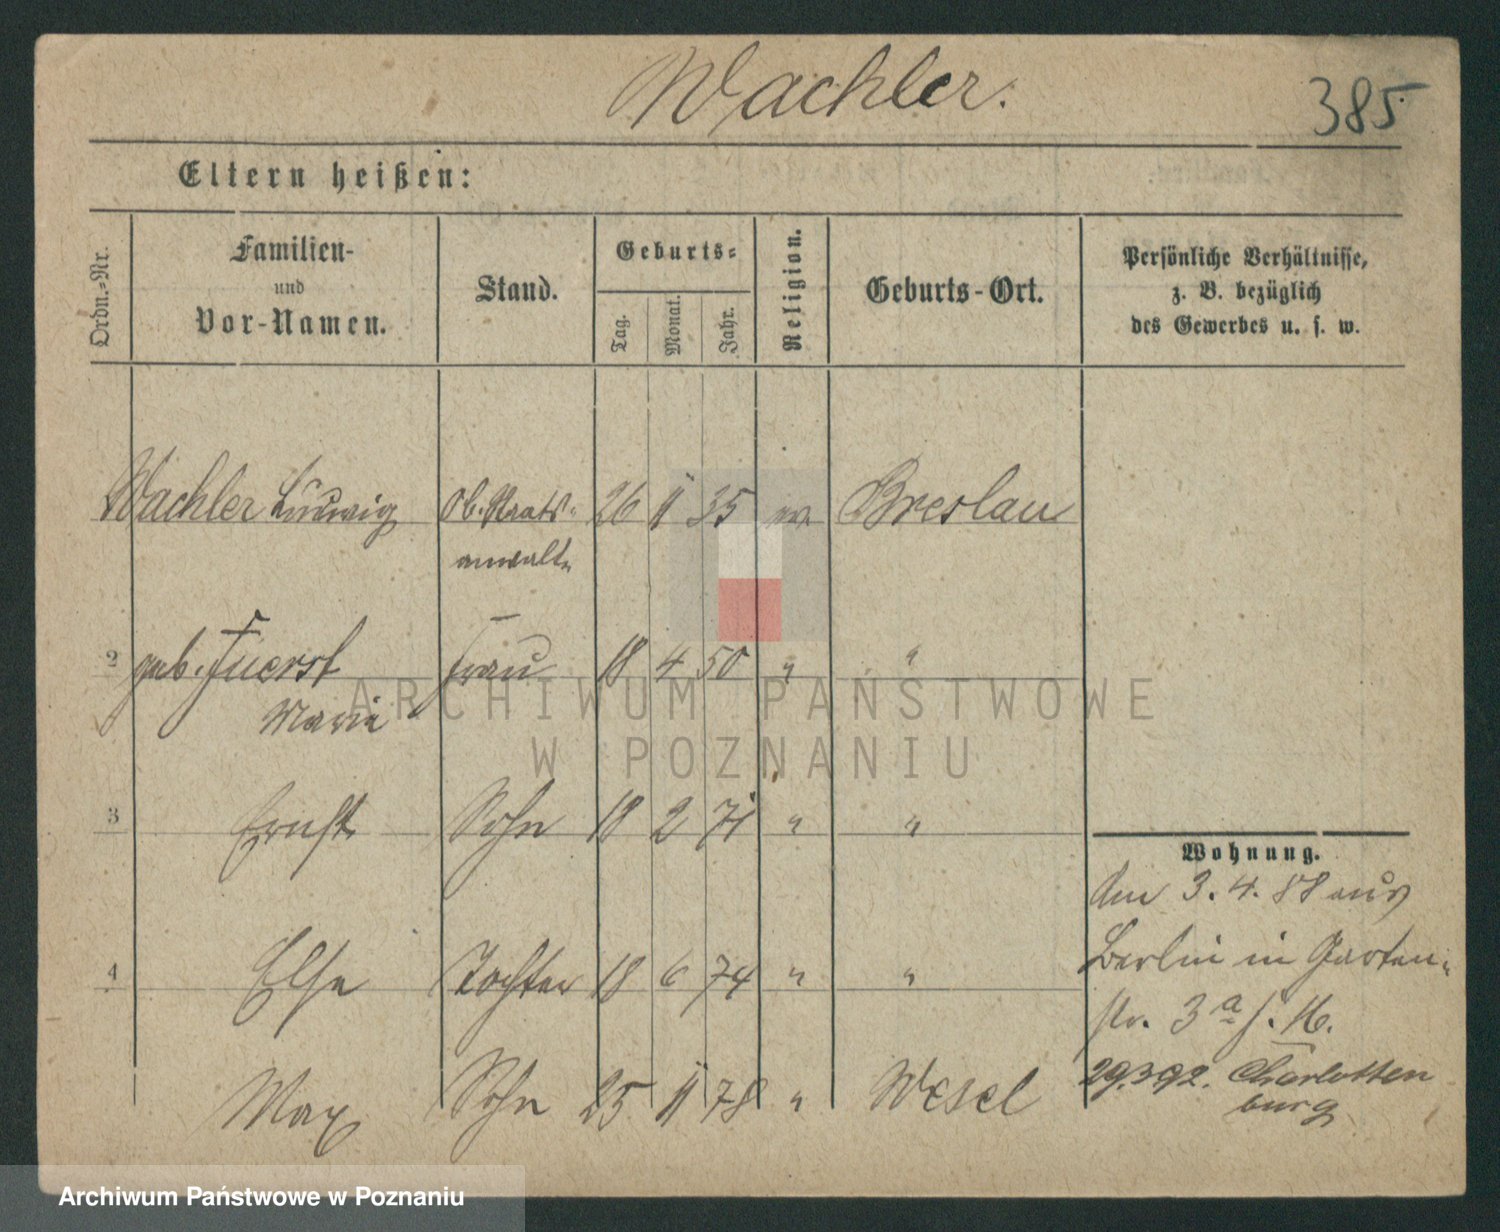 Wachler.
385
Eltern heißen:
Ordn.-Nr.
Familien-
und
Vor-Namen.
Stand.
Geburts-
Tag.
Monat.
Jahr.
Religion.
Geburts-Ort.
Persönliche Verhältnisse,
z. B. bezüglich
des Gewerbes u. s. w.
Wachler Ludwig Ob. Staats- 26 11 35 ev. Breslau
anwalt
2 geb. Fuerst Frau 18 4 50 " "
Marie
3 Ernst Sohn 18 2 71 " "
4 Else Tochter 18 6 74 " "
Max Sohn 25 11 78 " Wesel
Wohnung.
3. 4. 88 aus
Berlin in Garten-
str. 3a
29.3.92. Charlotten
burg
ARCHIWUM PAŃSTWOWE
W POZNANIU
Archiwum Państwowe w Poznaniu